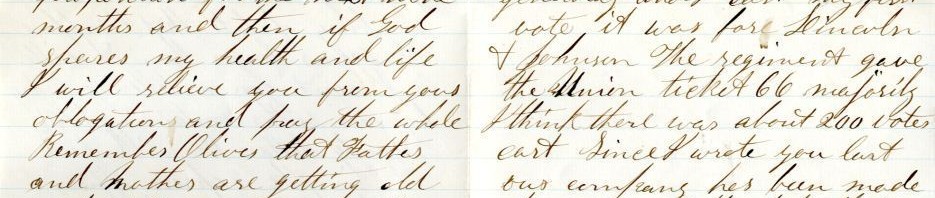 months and then if God
spares my health and life
I will relieve you from your
oblogation and pay the whole
Remember Oliver that Father
and mother are getting old
my first
vote it was fore Lincoln
& Johnson The regiment gave
the Union ticket 66 majority
I think there was about 200 votes
cast Since I wrote you last
our company has been made